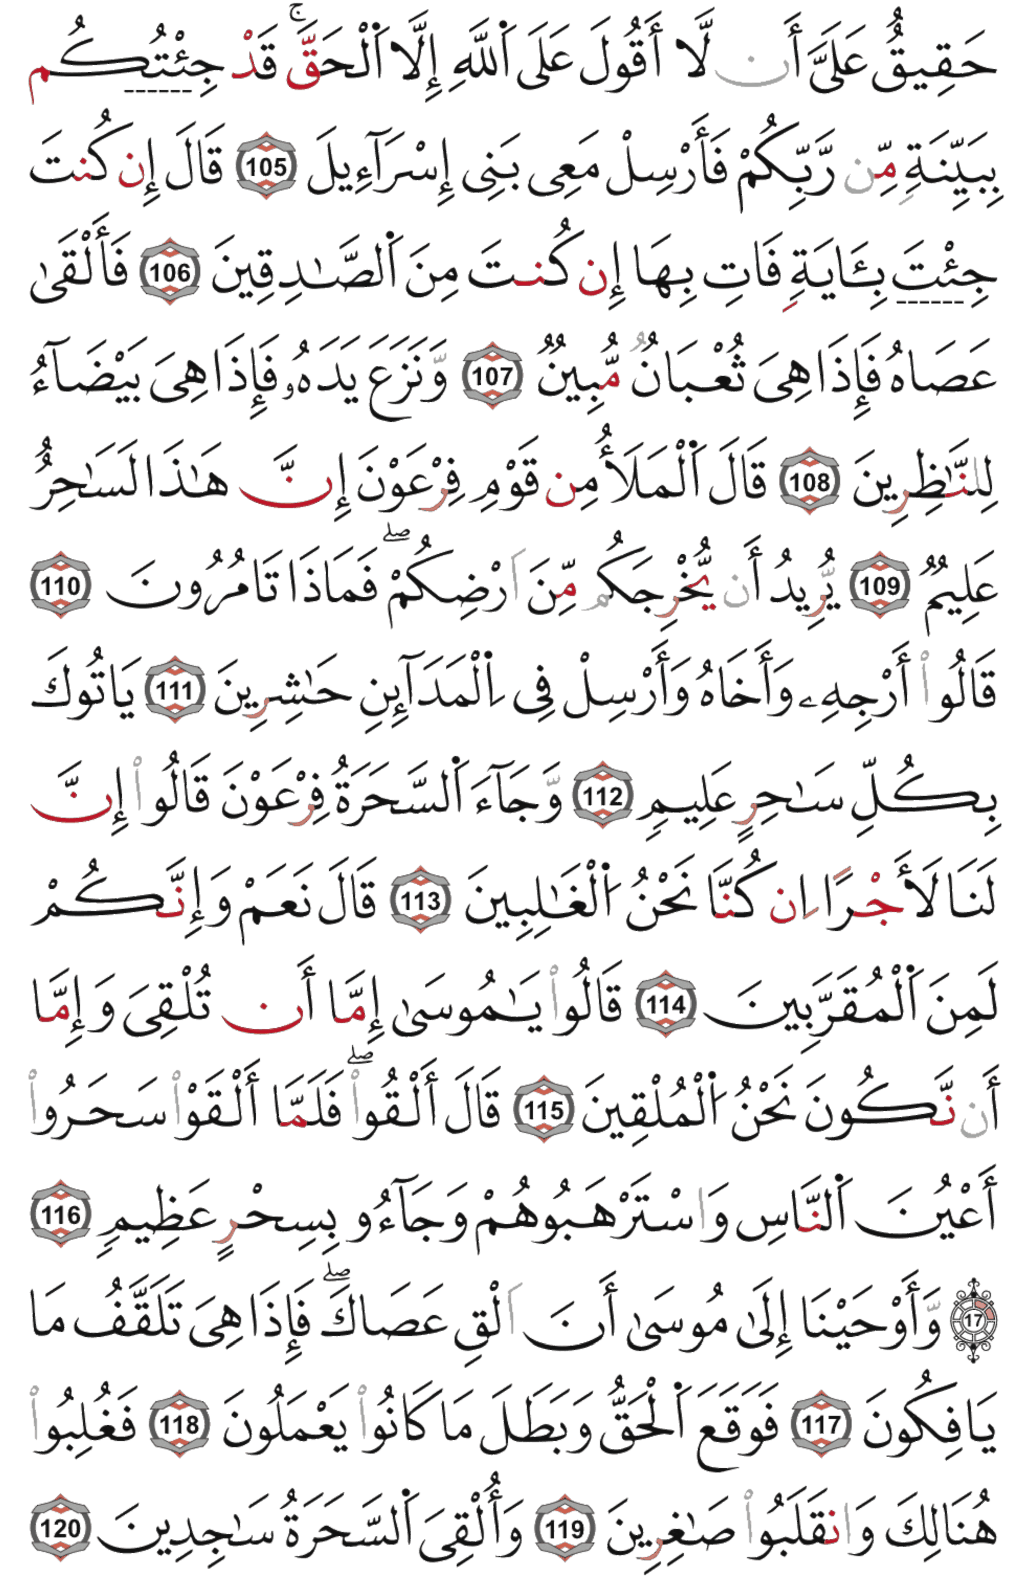 حَقِيقٌ عَلَيَّ أَن لَّا أَقُولَ عَلَى اَ۬للَّهِ إِلَّا اَ۬لْحَقَّۚ قَدْ جِئْتُكُم
بِبَيِّنَةٍ مِّن رَّبِّكُمْ فَأَرْسِلْ مَعِي بَنِي إِسْرَآءِيلَ 105 قَالَ إِن كُنتَ
جِئْتَ بِـَٔايَةٍ فَاتِ بِهَا إِن كُنتَ مِنَ اَ۬لصَّٰدِقِينَ 106 فَأَلْقَىٰ
عَصَاهُ فَإِذَا هِيَ ثُعْبَانٌ مُّبِينٌ 107 وَّنَزَعَ يَدَهُۥ فَإِذَا هِيَ بَيْضَآءُ
لِلنَّٰظِرِينَ 108 قَالَ اَ۬لْمَلَأُ مِن قَوْمِ فِرْعَوْنَ إِنَّ هَٰذَا لَسَٰحِرٌ
عَلِيمٌ 109 يُّرِيدُ أَن يُّخْرِجَكُم مِّنَ اَرْضِكُمْۖ فَمَاذَا تَامُرُونَ 110
قَالُواْ أَرْجِهِۦ وَأَخَاهُ وَأَرْسِلْ فِي اِ۬لْمَدَآئِنِ حَٰشِرِينَ 111 يَاتُوكَ
بِكُلِّ سَٰحِرٍ عَلِيمٍ 112 وَّجَآءَ اَ۬لسَّحَرَةُ فِرْعَوْنَ قَالُواْ إِنَّ
لَنَا لَأَجْرًا اِن كُنَّا نَحْنُ اُ۬لْغَٰلِبِينَ 113 قَالَ نَعَمْ وَإِنَّكُمْ
لَمِنَ اَ۬لْمُقَرَّبِينَ 114 قَالُواْ يَٰمُوسَىٰ إِمَّا أَن تُلْقِيَ وَإِمَّا
أَن نَّكُونَ نَحْنُ اُ۬لْمُلْقِينَ 115 قَالَ أَلْقُواْۖ فَلَمَّا أَلْقَوْاْ سَحَرُواْ
أَعْيُنَ اَ۬لنَّاسِ وَاسْتَرْهَبُوهُمْ وَجَآءُو بِسِحْرٍ عَظِيمٍ 116
17 وَّأَوْحَيْنَا إِلَىٰ مُوسَىٰ أَنَ اَلْقِ عَصَاكَۖ فَإِذَا هِيَ تَلَقَّفُ مَا
يَافِكُونَ 117 فَوَقَعَ اَ۬لْحَقُّ وَبَطَلَ مَا كَانُواْ يَعْمَلُونَ 118 فَغُلِبُواْ
هُنَالِكَ وَانقَلَبُواْ صَٰغِرِينَ 119 وَأُلْقِيَ اَ۬لسَّحَرَةُ سَٰجِدِينَ 120